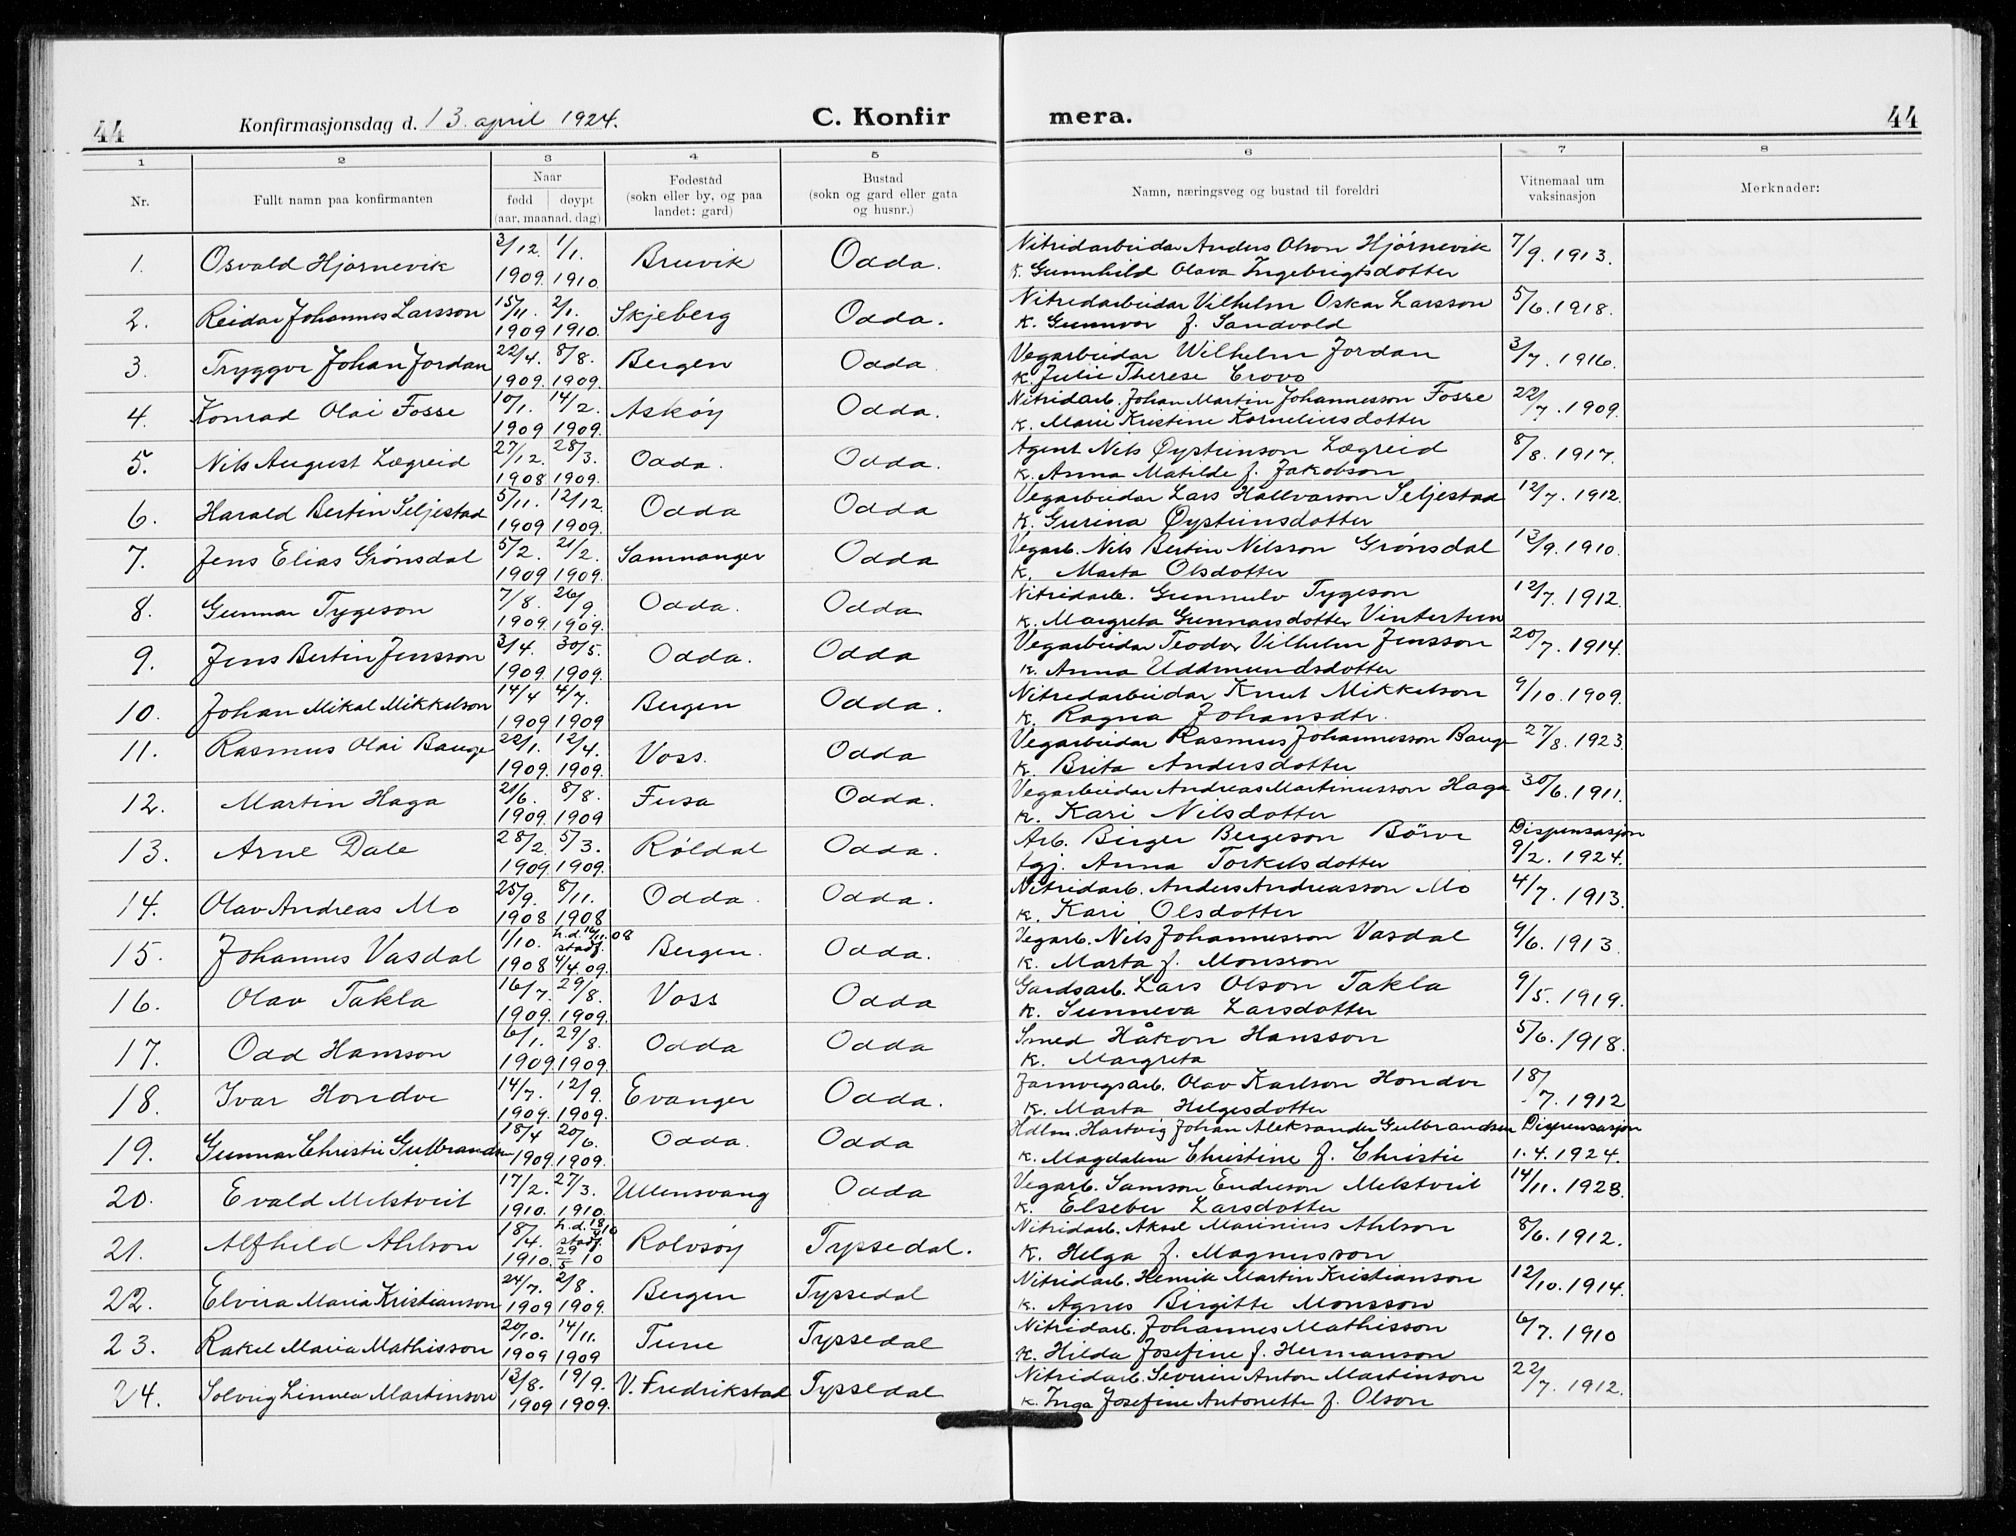 44 Konfirmasjonsdag d. 13. april 1924. C. Konfir mera. 44
1 2 3 4 5 6 7 8
Nr. Fullt namn paa konfirmanten Naar fødd døypt (aar, maanad, dag) Fødeståd (sokn eller by, og paa landet: gard) Bustad (sokn og gard eller gata og husnr.) Namn, næringsveg og bustad til foreldri Vitnemaal um vaksinasjon Merknader:
1. Osvald Hjørnevik 3/12. 1909. 1/1. 1910. Bruvik Odda. Nitridarbeidar Anders Olson Hjørnevik 7/9. 1913.
k. Gunnhild Olava Ingebrigtsdotter
2. Reidar Johannes Larsson 15/11. 1909 2/1. 1910. Skjeberg Odda. Nitridarbeidar Vilhelm Oskar Larsson 5/6. 1918.
k. Gunnvor f. Sandvold
3. Tryggve Johan Jordan 22/4. 1909. 8/8. 1909. Bergen Odda. Vegarbeidar Wilhelm Jordan 3/7. 1916.
k. Julie Therese Crovo
4. Konrad Olai Fosse 10/1. 1909 14/2. 1909. Askøy Odda. Nitridarb. Johan Martin Johannesson Fosse 22/7. 1909.
k. Marie Kristine Korneliusdotter
5. Nils August Lægreid 27/12. 1908 28/3. 1909. Odda. Odda. Agent Nils Øysteinson Lægreid 8/8. 1917.
k. Anna Matilde f. Jakobson
6. Harald Bertin Seljestad 5/11. 1909 12/12. 1909. Odda Odda Vegarbeidar Lars Hallvarson Seljestad 12/7. 1912.
k. Gurina Øysteinsdotter
7. Jens Elias Grønsdal 5/2. 1909 21/2. 1909. Samnanger Odda Vegarb. Nils Bertin Nilsson Grønsdal 13/9. 1910.
k. Marta Olsdotter
8. Gunnar Tygeson 7/8. 1909. 26/9. 1909. Odda. Odda Nitridarb. Gunnulv Tygeson 12/7. 1912.
k. Margreta Gunnarsdotter Vintertun
9. Jens Bertin Jensson 3/4. 1909. 30/5. 1909. Odda. Odda Vegarbeidar Teodor Vilhelm Jensson 20/7. 1914.
k. Anna Uddmundsdotter
10. Johan Mikal Mikkelson 14/4 1909 4/7. 1909 Bergen Odda. Nitridarbeidar Knut Mikkelson 9/10. 1909.
k. Ragna Johansdtr.
11. Rasmus Olai Bauge 22/1. 1909. 12/4. 1909. Voss. Odda Vegarbeidar Rasmus Johannesson Bauge 27/8. 1923.
k. Brita Andersdotter
12. Martin Haga 21/6. 1909. 8/8. 1909 Fusa Odda. Vegarbeidar Andreas Martinusson Haga 30/6. 1911.
k. Kari Nilsdotter
13. Arne Dale 28/2. 1909. 5/3. 1909. Røldal Odda. Arb. Birger Bergeson Börve Dispensasjon
tgj. Anna Torkelsdotter 9/2. 1924.
14. Olav Andreas Mo 25/9. 1908 8/11. 1908 Odda. Odda. Nitridarb. Anders Andreasson Mo 4/7. 1913.
k. Kari Olsdotter
15. Johannes Vasdal 1/10. 1908 h.d. 16/11.08 stadf. 4/4. 09. Bergen. Odda. Vegarb. Nils Johannesson Vasdal 9/6. 1913.
k. Marta f. Monsson
16. Olav Takla 16/7. 1909. 29/8. 1909. Voss Odda Gardsarb. Lars Olson Takla 9/5. 1919.
k. Sunneva Larsdotter
17. Odd Hansson 6/1. 1909. 29/8. 1909. Odda Odda Smed Håkon Hansson 5/6. 1918.
k. Margreta
18. Ivar Hondve 14/7. 1909. 12/9. 1909. Evanger Odda. Jarnvegsarb. Olav Karlson Hondve 18/7. 1912
k. Marta Helgesdotter
19. Gunnar Christie Gulbrandsen 18/4 1909 20/6. 1909. Odda. Odda Hdlm. Hartvig Johan Aleksander Gulbrandsen Dispensasjon
k. Magdalene Christine f. Christie 1. 4. 1924.
20. Evald Melstveit 17/2. 1910. 27/3. 1910. Ullensvang Odda Vegarb. Samson Endreson Melstveit 14/11. 1923.
k. Elseber Larsdotter
21. Alfhild Ahlson 18/4. 1910. h.d. stadf. 29/5 10 Rolvsøy Tyssedal. Nitridarb. Aksel Marinius Ahlson 8/6. 1912.
k. Helga f. Magnusson
22. Elvira Maria Kristianson 24/7. 1909 2/8. 1909. Bergen Tyssedal Nitridarb. Henrik Martin Kristianson 12/10. 1914.
k. Agnes Birgitte Monsson
23. Rakel Maria Mathisson 20/10. 1909 14/11. 1909 Tune Tyssedal Nitridarb. Johannes Mathisson 6/7. 1910
k. Hilda Josefine f. Hermanson
24. Solveig Linnea Martinson 13/8. 1909 19/9. 1909. V. Fredrikstad Tyssedal Nitridarb. Severin Anton Martinson 22/7. 1912.
k. Inga Josefine Antonette f. Olson